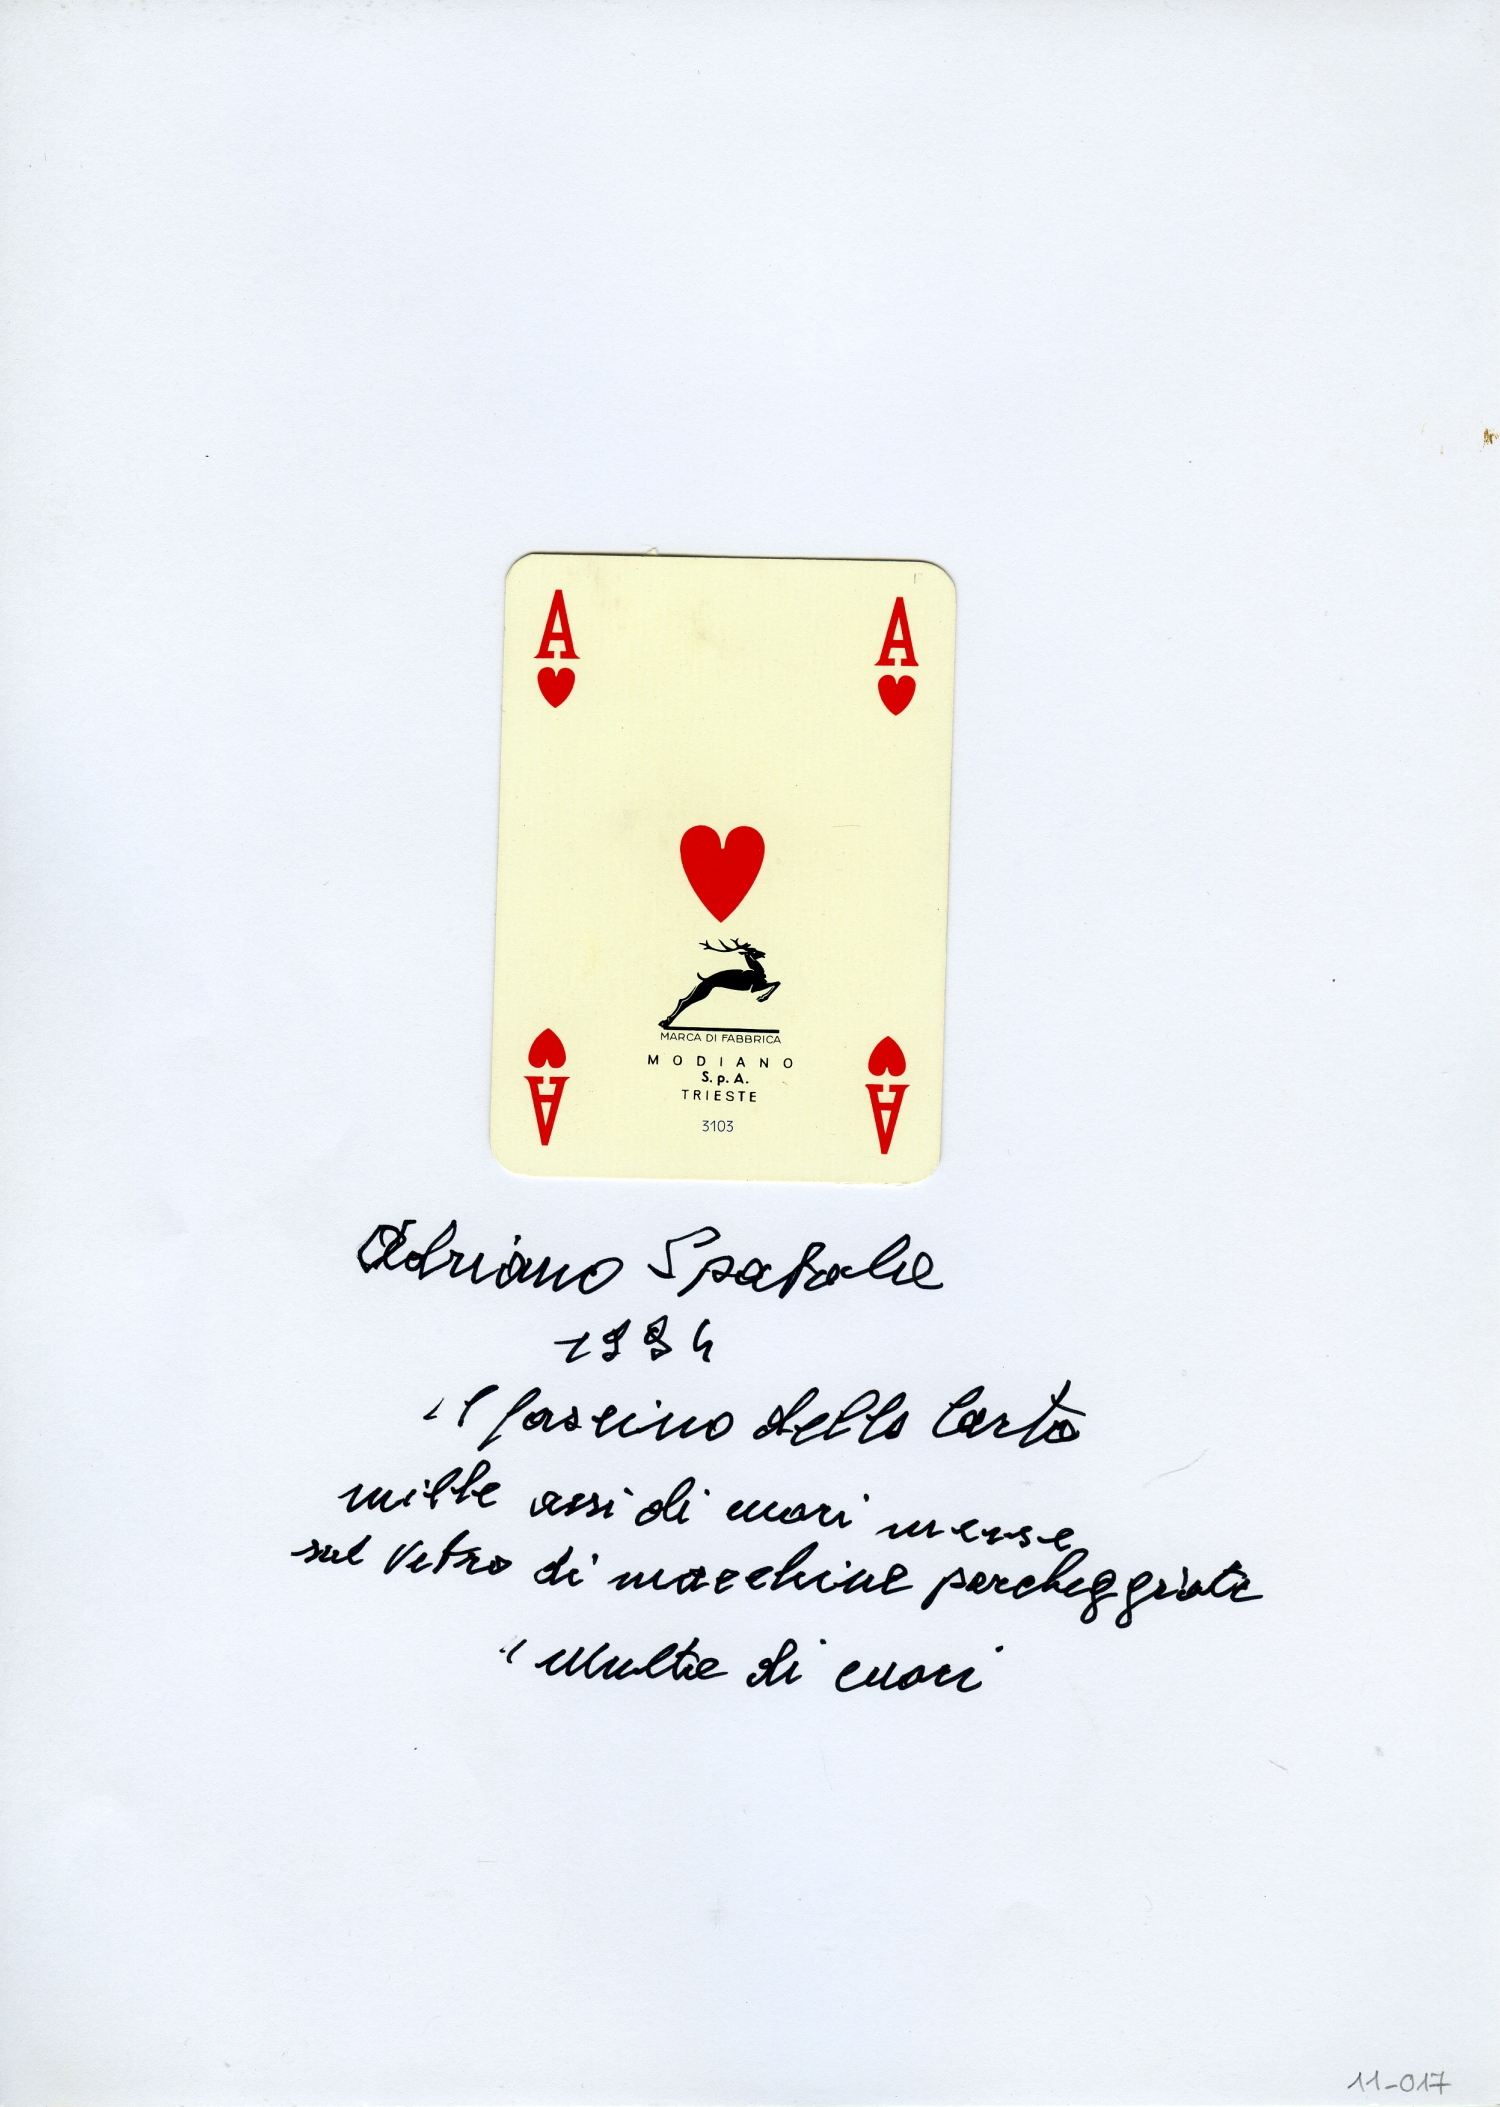 A A
MARCA DI FABBRICA
MODIANO
S.p.A.
TRIESTE
3103
A A
Adriano
1994
il fascino della Carta
mille assi di cuori messe
sul vetro di macchine parcheggiate
"Multe di cuori
11-017